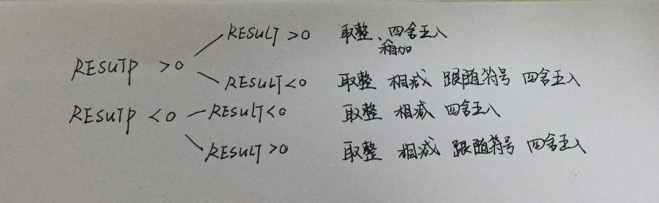 RESULT >0 取整、四舍五入
相加
RESUTP >0
RESULT<0 取整 相减 跟随符号 四舍五入
RESUTP <0 RESULT<0 取整 相减 四舍五入
RESULT >0 取整 相减 跟随符号 四舍五入